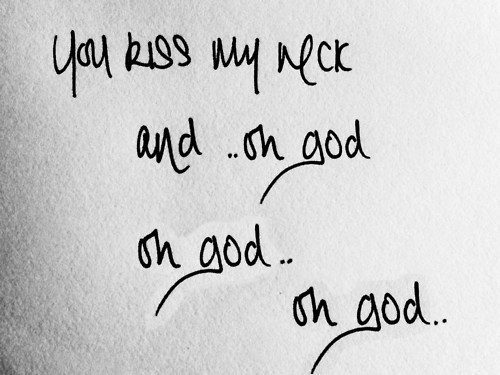 you kiss my neck
and ..oh god
oh god..
oh god..